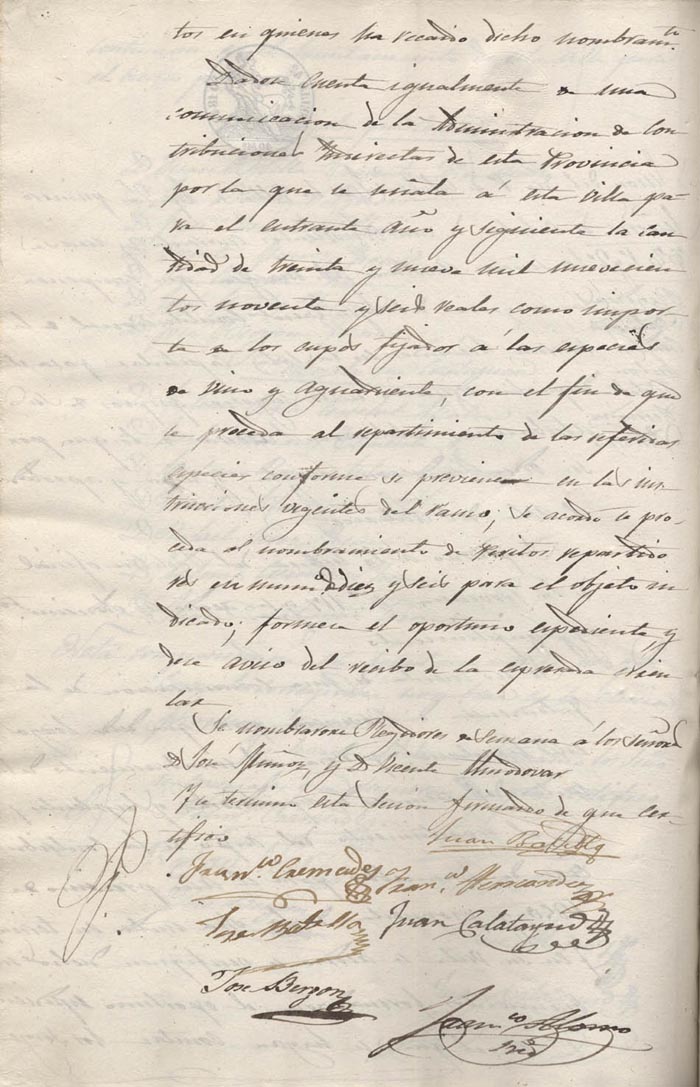 tos en quienes ha recaido dicho nombramto
Dadose cuenta igualmente de una
comunicacion de la Administracion de Con
tribuciones Indirectas de esta Provincia
por la que se señala á esta villa pa-
ra el entrante año y siguiente la can
tidad de treinta y nueve mil novecien
tos noventa y seis reales como impor
te de los cupos fijados á las especies
de vino y aguardiente, con el fin de que
se proceda al repartimiento de las referidas
especies conforme se previene en las ins
trucciones vigentes del ramo; se acordó se pro
ceda al nombramiento de peritos repartido
res en numo diez y seis para el objeto in
dicado; formese el oportuno espediente, y
dese aviso del recibo de la espresada circu
lar
Se nombraron Regidores de semana á los Señores
D. José Muñoz y D. Vicente Almodovar
Y se termino esta sesion firmando de que cer-
tifico
Juan
Franco Cremades
Franco Hernandez
Jose Botella
Juan Calatayud
Jose
Franco Alonso
Srio